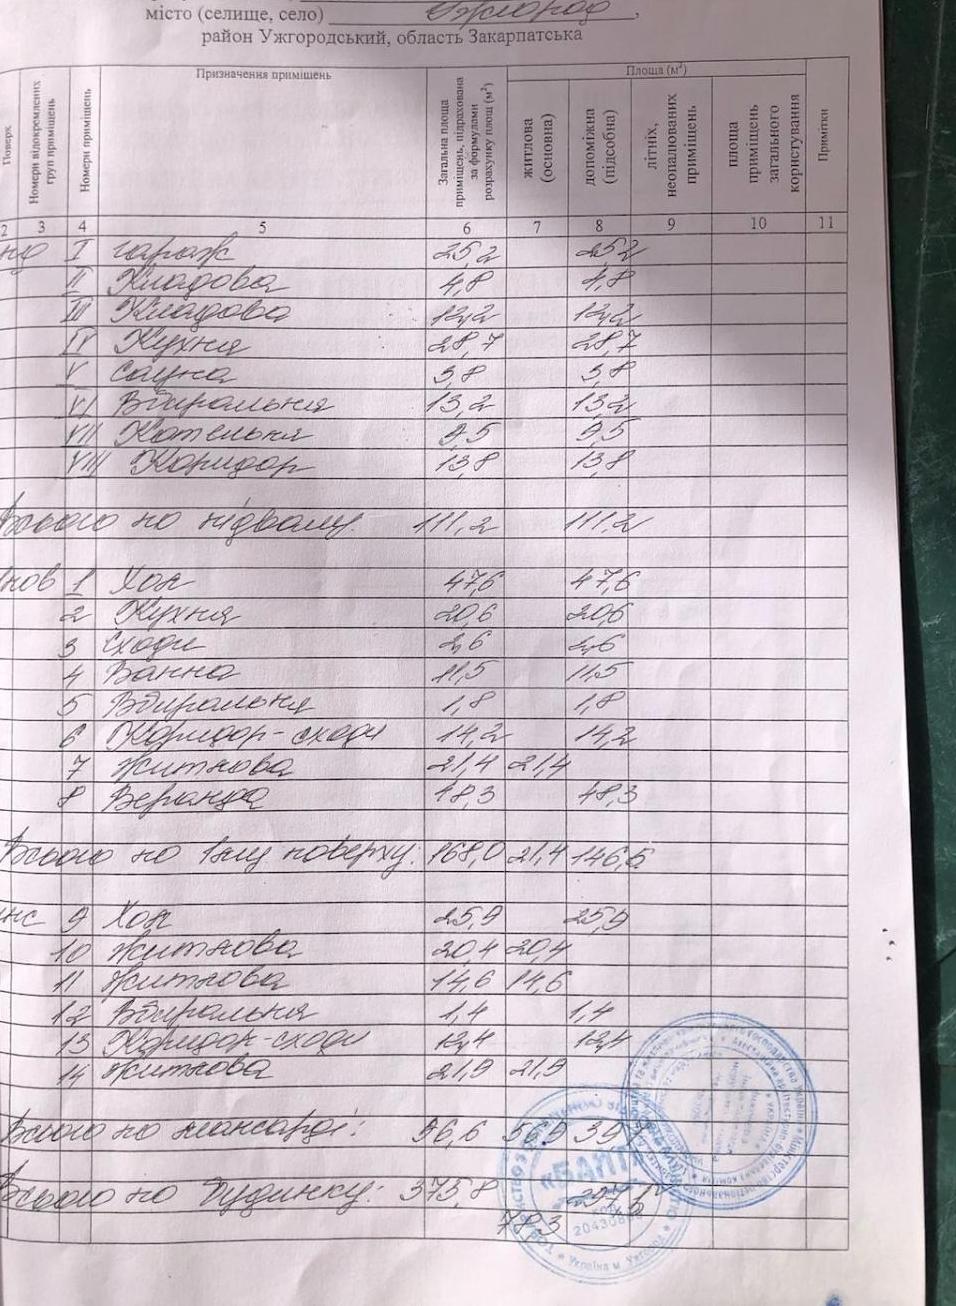 місто (селище, село) Ужгород,
район Ужгородський, область Закарпатська
Поверх
Номери відокремлених груп приміщень
Номери приміщень
Призначення приміщень
Загальна площа приміщень, підрахована за формулами розрахунку площ (м²)
Площа (м²)
житлова (основна)
допоміжна (підсобна)
літніх, неопалюваних приміщень
площа приміщень загального користування
Примітки
2 3 4 5 6 7 8 9 10 11
I гараж 25,2 25,2
II Кладова 4,8 4,8
III Кладова 12,2 12,2
IV Кухня 28,7 28,7
V Сауна 3,8 3,8
VI Вбиральня 13,2 13,2
VII Котельня 9,5 9,5
VIII Коридор 13,8 13,8
Всього по підвалу: 111,2 111,2
1 Хол 47,6 47,6
2 Кухня 20,6 20,6
3 Сходи 2,6 2,6
4 Ванна 11,5 11,5
5 Вбиральня 1,8 1,8
6 Коридор-сходи 14,2 14,2
7 Житлова 21,4 21,4
8 Веранда 18,3 18,3
Всього по 1му поверху: 168,0 21,4 146,6
9 Хол 25,9 25,9
10 Житлова 20,4 20,4
11 Житлова 14,6 14,6
12 Вбиральня 1,4 1,4
13 Коридор-сходи 12,4 12,4
14 Житлова 21,9 21,9
Всього по мансарді: 96,6 56,9 39,7
Всього по будинку: 375,8
78,3
Україна м. Ужгород